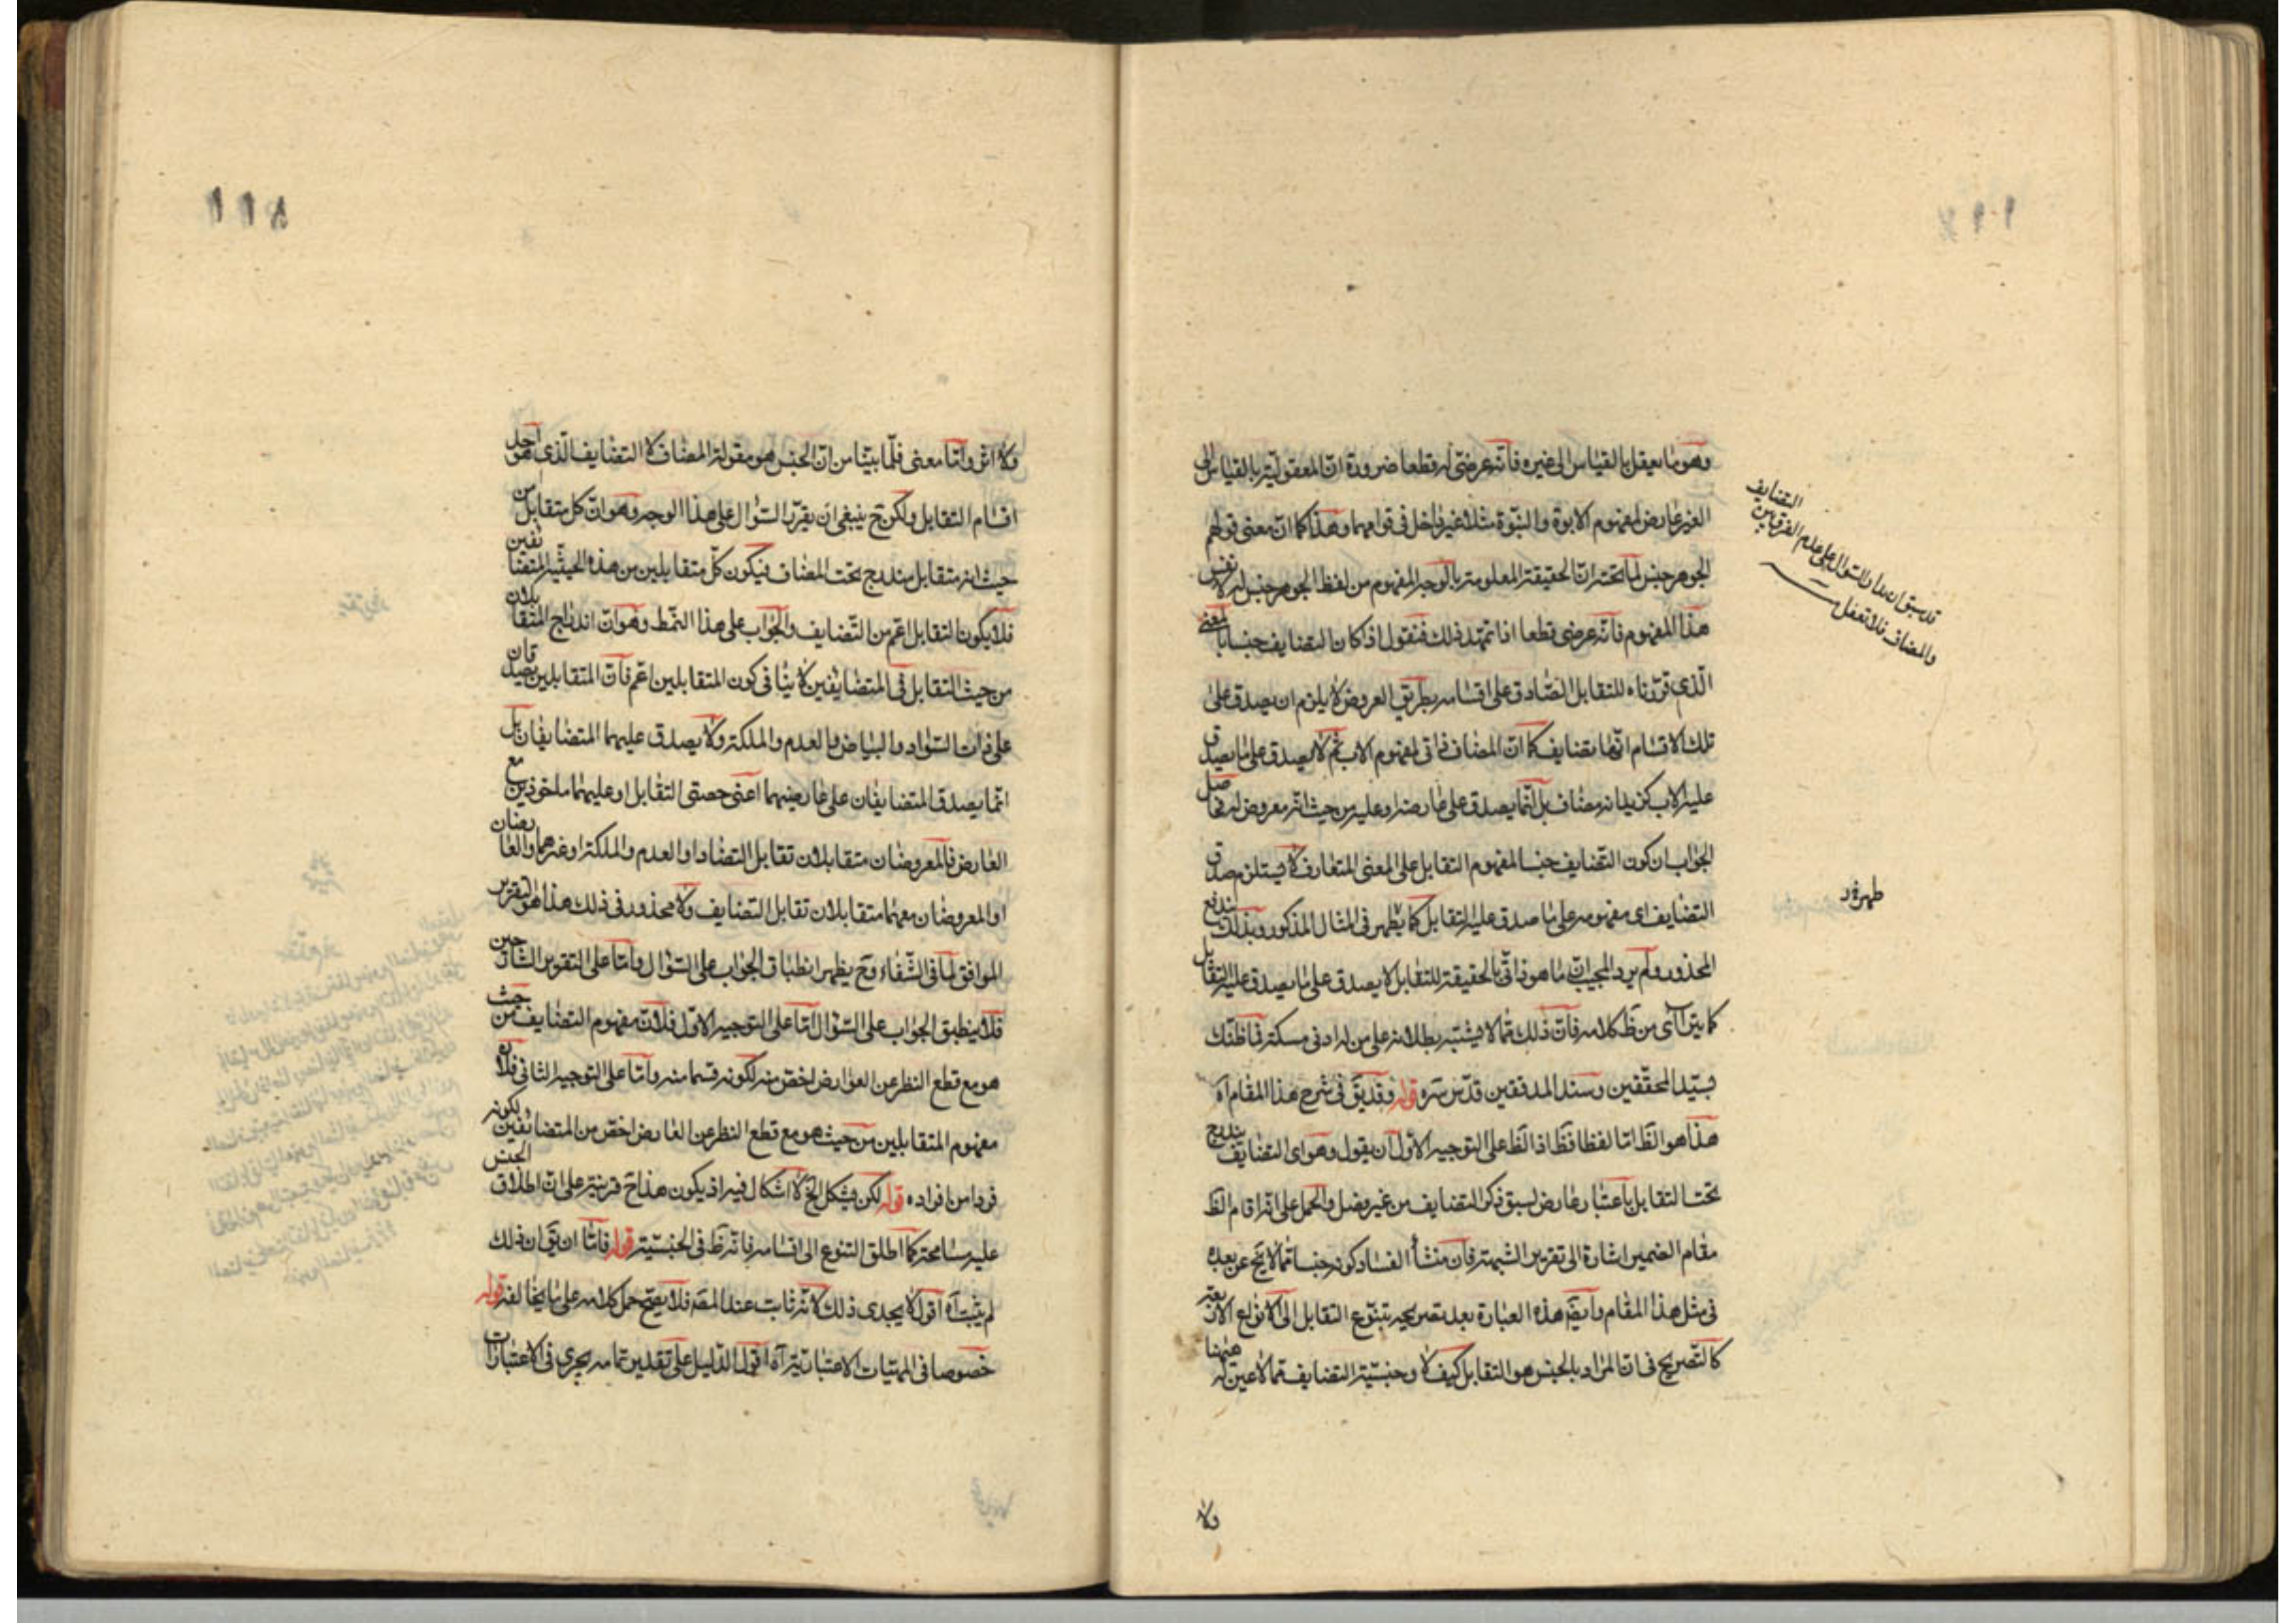 وهو ما يعقل بالقياس الى غيره فانه عرضى له قطعا ضرورة ان المعقولية بالقياس الى
الغير عارض لمفهوم الابوة والبنوة مثلا غير داخل فى قوامهما وهذا كما ان معنى قولهم
الجوهر جنس لما تحته ان الحقيقة المعلومة بالوجه المفهوم من لفظ الجوهر جنس له لا نفس
هذا المفهوم فانه عرضى قطعا اذا تمهد ذلك فنقول اذ كان التضايف جنسا بالمعنى
الذى قررناه للتقابل الصادق على اقسامه بطريق العروض لا يلزم ان يصدق على
تلك الاقسام انها تضايف كما ان المضاف ذاتى لمفهوم الاب ثم لا يصدق على ما يصدق
عليه الاب كزيد انه مضاف بل انما يصدق على عارضه او عليه من حيث انه معروض له فحاصل
الجواب ان كون التضايف جنسا لمفهوم التقابل على المعنى المتعارف لا يستلزم صدق
التضايف اى مفهومه على ما صدق عليه التقابل كما يظهر فى المثال المذكور وبذلك يندفع
المحذور ولم يرد المجيب ان ما هو ذاتى بالحقيقة للتقابل لا يصدق على ما يصدق عليه التقابل
كما يترااى من ظ كلامه فان ذلك مما لا يشتبه بطلانه على من له ادنى مسكة فما ظنك
بسيد المحققين وسند المدققين قدس سره قوله وقد يق فى شرح هذا المقام آه
هذا هو الظ اما لفظا فظ اذ الظ على التوجيه الاول ان يقول وهو اى التضايف يندرج
تحت التقابل باعتبار عارض لسبق ذكر التضايف من غير فصل والحمل على انه اقام الظ
مقام الضمير اشارة الى تقرير الشبهة فان منشأ الفساد كونه جنسا مما لا يخ عن بعد
فى مثل هذا المقام وايضه هذه العبارة بعد تصريحه بتنوع التقابل الى الانواع الاربعة
كالتصريح فى ان المراد بالجنس هو التقابل كيف لا وجنسية التضايف مما لا عين له ههنا
قد سبق ان مدار السؤال على عدم الفرق بين التضايف
والمضاف فلا تغفل
ولا
ولا اثر واما معنى فلما بينا من ان الجنس هو مقولة المضاف لا التضايف الذى هو احد
اقسام التقابل ولكن ح ينبغى ان يقرر السؤال على هذا الوجه وهو ان كل متقابل من
حيث انه متقابل مندرج تحت المضاف فيكون كل متقابلين من هذه الحيثية المتضايفين
فلا يكون التقابل اعم من التضايف والجواب على هذا النمط وهو ان اندراج المتقابلان
من حيث التقابل فى المتضايفين لا ينافى كون المتقابلين اعم فان المتقابلين يصدقان
على ذات السواد والبياض والعدم والملكة ولا يصدق عليهما المتضايفان بل
انما يصدق المتضايفان على عارضيهما اعنى حصتى التقابل او عليهما ماخوذين مع
العارض فالمعروضان متقابلان تقابل التضاد او العدم والملكة او غيرهما والعارضان
او المعروضان معهما متقابلان تقابل التضايف ولا محذور فى ذلك هذا هو التقرير
الموافق لما فى الشفاء وح يظهر انطباق الجواب على السؤال واما على التقرير الشارحين
فلا ينطبق الجواب على السؤال اما على التوجيه الاول فلان مفهوم التضايف من حيث
هو مع قطع النظر عن العوارض اخص منه لكونه قسما منه واما على التوجيه الثانى فلان
مفهوم المتقابلين من حيث هو مع قطع النظر عن العارض اخص من المتضايفين لكونه
فردا من افراده قوله لكن يشكل الخ لا اشكال فيه اذ يكون هذا ح قرينة على ان اطلاق الجنس
عليه مسامحة كما اطلق التنوع الى اقسامه فانه ظ فى الجنسية قوله فاما ان يق ان ذلك
لم يثبت آه اقول لا يجدى ذلك لانه ثابت عند المصه فلا يصح حمل كلامه على ما يخالفه قوله
خصوصا فى المهيات الاعتبارية آه اقول الدليل على تقدير تمامه يجرى فى الاعتبارات